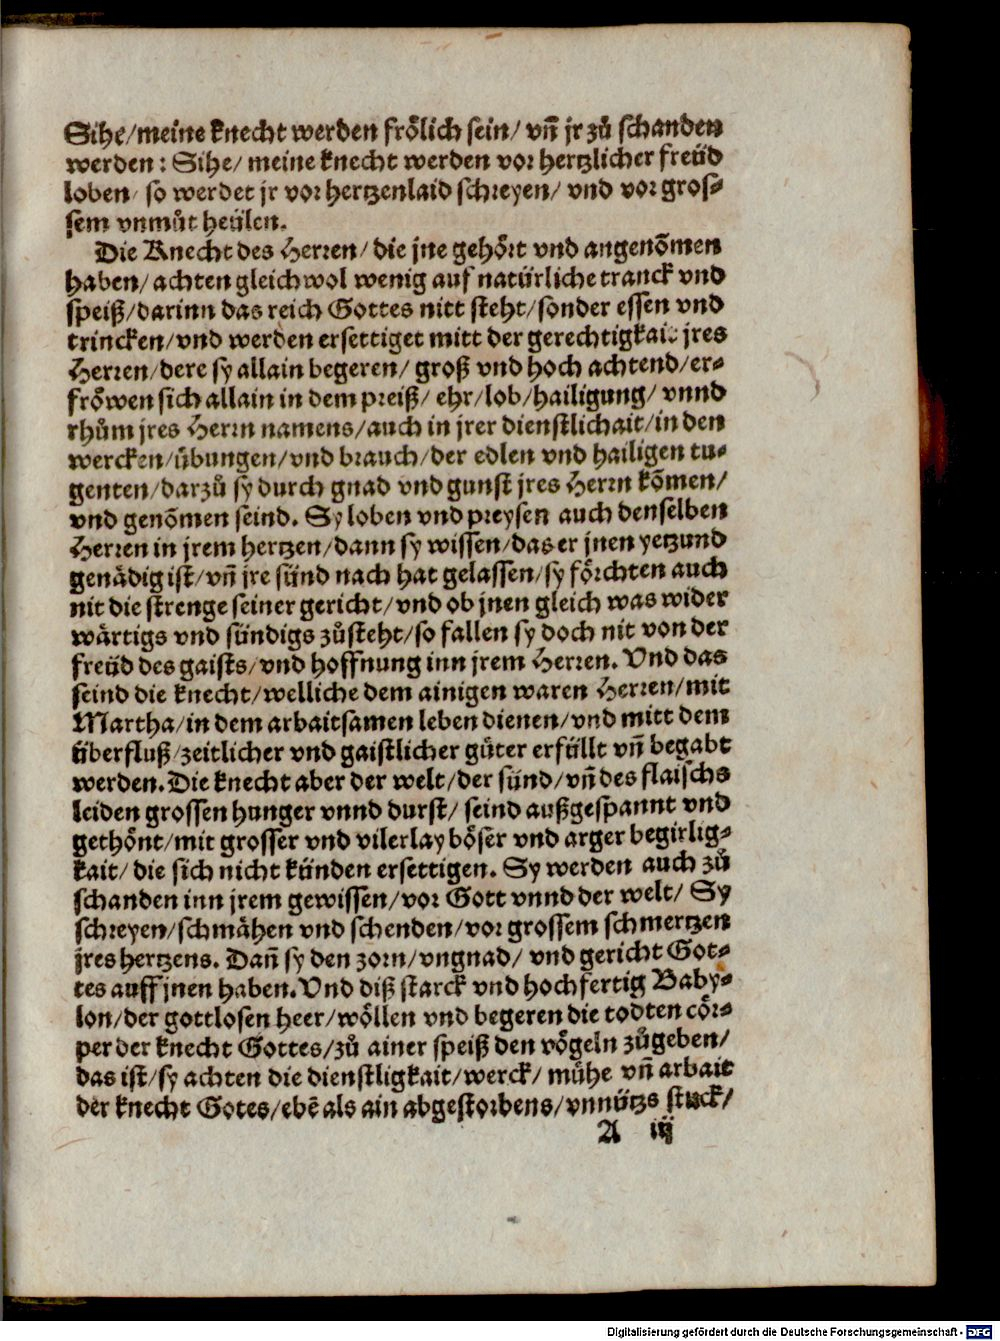 Sihe/meine knecht werden frölich sein/ vñ jr zů schanden
werden: Sihe/ meine knecht werden vor hertzlicher freüd
loben/ so werdet jr vor hertzenlaid schreyen/ vnd vor gros⸗
sem vnmůt heülen.
Die Knecht des Herren/ die jne gehört vnd angenõmen
haben/ achten gleich wol wenig auf natürliche tranck vnd
speiß/darinn das reich Gottes nitt steht/sonder essen vnd
trincken/vnd werden ersettiget mitt der gerechtigkait jres
Herren/dere sy allain begeren/ groß vnd hoch achtend/er⸗
fröwen sich allain in dem preiß/ ehr/lob/hailigung/ vnnd
rhům jres Herrn namens/auch in jrer dienstlichait/in den
wercken/übungen/vnd brauch/der edlen vnd hailigen tu⸗
genten/darzů sy durch gnad vnd gunst jres Herrn kõmen/
vnd genõmen seind. Sy loben vnd preysen auch denselben
Herren in jrem hertzen/dann sy wissen/das er jnen yetzund
genädig ist/vñ jre sünd nach hat gelassen/sy förchten auch
nit die strenge seiner gericht/vnd ob jnen gleich was wider
wärtigs vnd sündigs zůsteht/so fallen sy doch nit von der
freüd des gaists/vnd hoffnung inn jrem Herren. Vnd das
seind die knecht/welliche dem ainigen waren Herren/mit
Martha/in dem arbaitsamen leben dienen/vnd mitt dem
überfluß/zeitlicher vnd gaistlicher güter erfüllt vñ begabt
werden. Die knecht aber der welt/der sünd/vñ des flaischs
leiden grossen hunger vnnd durst/ seind außgespannt vnd
gethönt/mit grosser vnd vilerlay böser vnd arger begirlig⸗
kait/ die sich nicht künden ersettigen. Sy werden auch zů
schanden inn jrem gewissen/vor Gott vnnd der welt/ Sy
schreyen/schmähen vnd schenden/vor grossem schmertzen
jres hertzens. Dañ sy den zorn/vngnad/ vnd gericht Got⸗
tes auff jnen haben. Vnd diß starck vnd hochfertig Baby⸗
lon/der gottlosen heer/wöllen vnd begeren die todten cör⸗
per der knecht Gottes/zů ainer speiß den vögeln zůgeben/
das ist/sy achten die dienstligkait/werck/ mühe vñ arbait
der knecht Gotes/ebẽ als ain abgestorbens/vnnützs stuck/
A iij
Digitalisierung gefördert durch die Deutsche Forschungsgemeinschaft - DFG